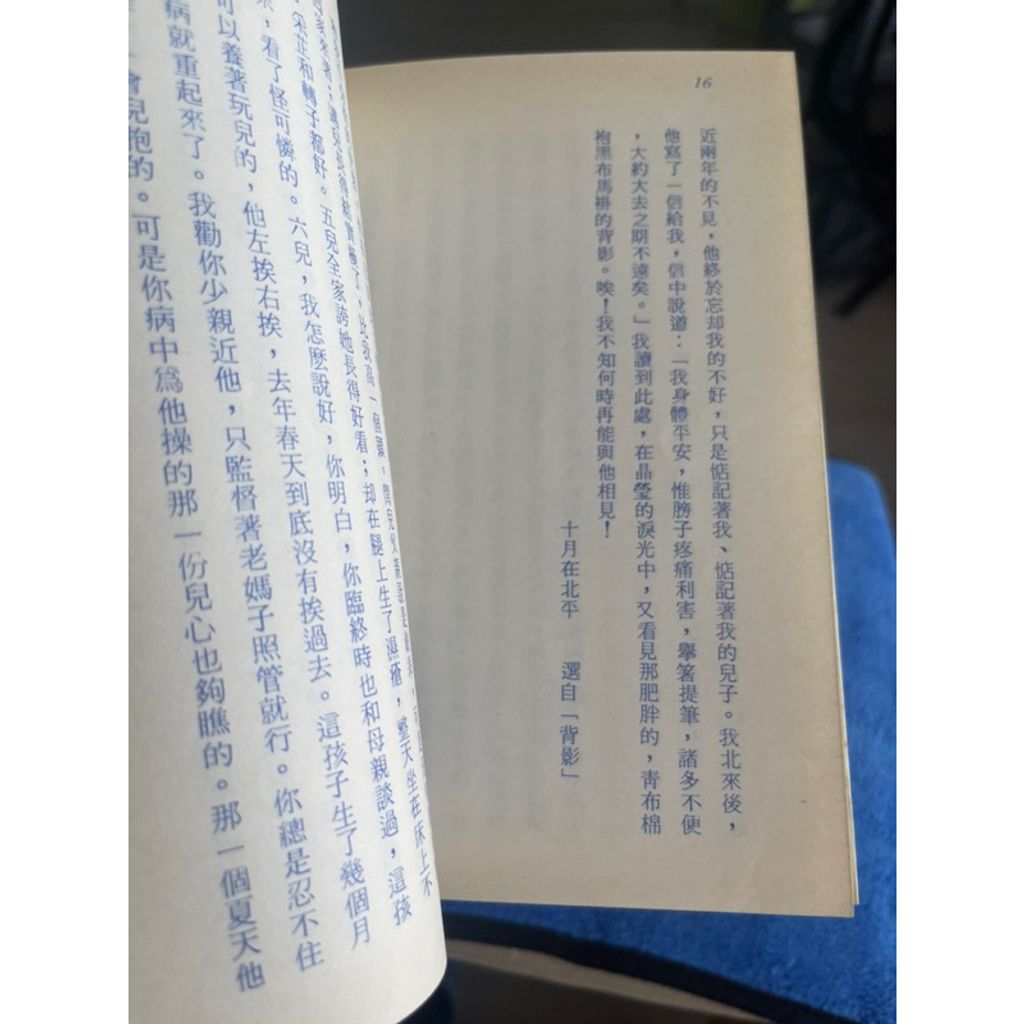 16
近兩年的不見，他終於忘却我的不好，只是惦記著我、惦記著我的兒子。我北來後，
他寫了一信給我，信中說道：「我身體平安，惟膀子疼痛利害，舉箸提筆，諸多不便
，大約大去之期不遠矣。」我讀到此處，在晶瑩的淚光中，又看見那肥胖的，靑布棉
袍黑布馬褂的背影。唉！我不知何時再能與他相見！
十月在北平　選自「背影」
長得結實極了，比我高一個頭。
采芷和轉子都好。五兒全家誇她長得好看；却在腿上生了濕瘡，整天坐在床上不
來，看了怪可憐的。六兒，我怎麽說好，你明白，你臨終時也和母親談過，這孩
可以養著玩兒的，他左挨右挨，去年春天到底沒有挨過去。這孩子生了幾個月
病就重起來了。我勸你少親近他，只監督著老媽子照管就行。你總是忍不住
會兒抱的。可是你病中爲他操的那一份兒心也夠瞧的。那一個夏天他